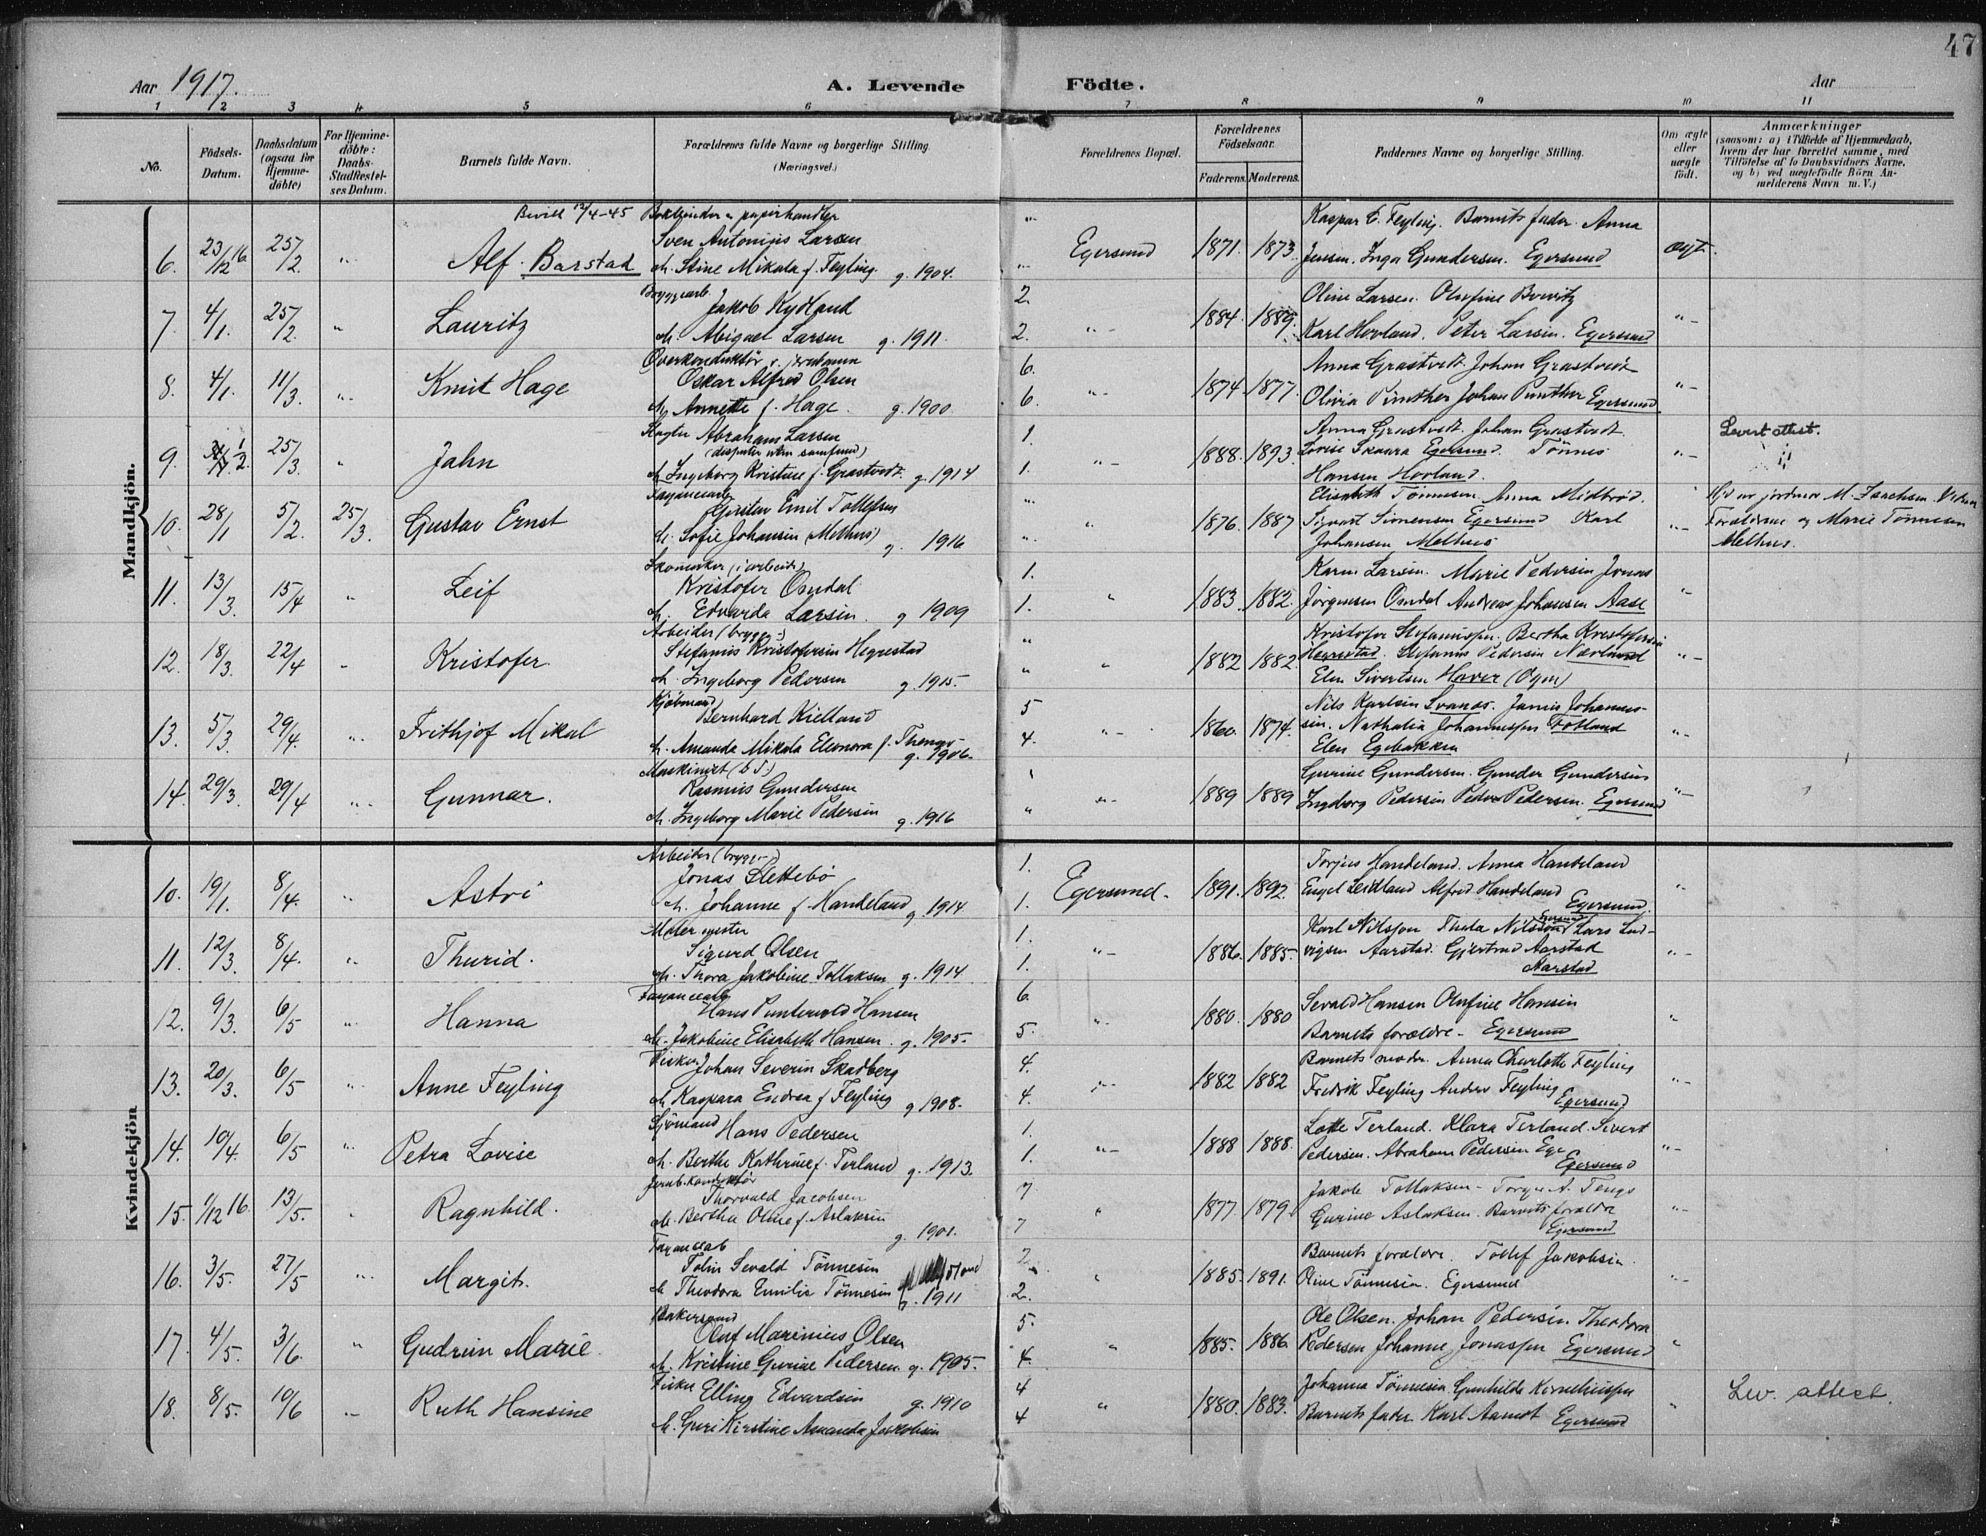 47
Aar 1917. A. Levende Födte. Aar
1 2 3 4 5 6 7 8 9 10 11
No. Födsels-Datum. Daabsdatum (ogsaa for Hjemme-döbte) For Hjemme-döbte: Daabs-Stadfæstel-ses Datum. Barnets fulde Navn. Forældrenes fulde Navne og borgerlige Stilling. (Næringsvei.) Forældrenes Bopæl. Forældrenes Födselsaar. Faderens. Moderens. Faddernes Navne og borgerlige Stilling. Om ægte eller uægte födt. Anmærkninger (saasom: a) i Tilfælde af Hjemmedaab, hvem der har forrettet samme, med Tilföielse af to Daabsvidners Navne, og b) ved uægtefödte Börn An-melderens Navn m. V.)
Mandkjön.
Bevill 12/4-45 Bokbinder & papirhandler " Kaspar E. Feyling. Barnets fader. Anna
6. 23/12 16. 25/2. " Alf. Barstad Sven Antonius Larsen Egersund 1871. 1873. Jensen. Inga Gundersen. Egersund ægt.
M. Stine Mikala f. Feyling. g. 1904. "
Bryggearb. 2. Oline Larsen. Olufine
7. 4/1. 25/2. " Lauritz Jakob Kydland " - 1884. 1889. Karl Hovland. Peter Larsen. Egersund " -
M. Abigael Larsen g. 1911. 2.
Overkonduktör v. jernbanen 6. Anna Grastvedt. Johan Grastvedt
8. 4/1. 11/3. " Knut Hage Oskar Alfred Olsen " - 1874. 1877. Olivia Pünther Johan Pünther Egersund " -
M. Annette f. Hage. g. 1900. 6.
Slagter Abraham Larsen 1. Anna Grastvedt. Johan Grastvedt. Levert attest.
9. 25/3. " Jahn M. Ingeborg Kristine f. Grastvedt. g. 1914 1. " - 1888. 1893. Lovise Skaara Egersund. Tönnes " -
Hansen Hovland.
Fayancearb. " Elisabeth Tönnesen Anna Midbrød. Hjd av jordmor M. Isachsen. Vidner
10. 28/1 5/2. 25/3. Gustav Ernst Gustav Emil Tollefsen " 1876. 1887 Sigvart Simensen Egersund Karl " - Forældrene og Marie Tönnesen
M. Sofie Johansen (Melhus) g. 1916 " Johansen Melhus Melhus.
Skomaker (i arbeide) 1. Karen Larsen. Marie Pedersen Jonas
11. 13/3. 15/4 " Leif Kristofer Omdal " 1883. 1882. Jörgensen Omdal Andreas Johansen Aase "
M. Edvarda Larsen. g 1909 1.
Arbeider (brygge-) " Kristofer Stefanussen. Bertha Kristofersen
12. 18/3. 22/4 " Kristofer Stefanus Kristofersen Hegrestad " 1882 1882. Hegrestad. Stefanus Pedersen Nærland " -
M. Ingeborg Pedersen g. 1915. " Elen Sivertsen Haver (Ogna)
Kjöbmand 5 Nils Karlsen Svanes. Jamis Johannes-
13. 5/3. 29/4. " Frithjof Mikal Bernhard Kielland " - 1860. 1874. sen. Nathalia Johannessen Fotland " -
M. Amanda Mikala Eleonora f. Thengs g. 1906. 4. Elen Egebakken
Maskinist " Gurine Gundersen. Gunder Gundersen
14. 29/3. 29/4 " Gunnar. Rasmus Gundersen " - 1889 1889 Ingeborg Pedersen Peder Pedersen. Egersund " -
M. Ingeborg Marie Pedersen g. 1916 "
Kvindekjön
Arbeider (brygge-) 1. Torjus Handeland. Anna Handeland
10. 19/1. 8/4. " Astri Jonas Slettebö Egersund. 1891. 1892. Engel Leidland Alfred Handeland "
M. Johanne f Handeland g. 1914 1. Egersund.
Maler mester 1. Karl Nilssen Thea Nilssen Egersund Lars Lud-
11. 12/3. 8/4. " Thurid. Sigurd Olsen " - 1886. 1885. vigsen Aarstad. Gjertrud Aarstad " -
M. Thora Jakobine Tollaksen g. 1914 1. Aarstad
Fayancearb 6. Sevald Hansen Olufine Hansen
12. 9/3. 6/5 " Hanna Hans Puntervold Hansen " - 1880. 1880 Barnets forældre - Egersund "
M. Jakobine Elisabeth Hansen. g. 1905. 5.
Fisker Johan Severin Skadberg 4. Barnets moder. Anna Charlotte Feyling
13. 20/3. 6/5 " Anne Feyling M. Kaspara Endrea f Feyling g 1908. 4. " - 1882 1882 Fredrik Feyling Anders Feyling Egersund " -
Sjömand Hans Pedersen 1. Lotte Terland. Klara Terland. Sivert
14. 10/4. 6/5 " Petra Lovise M. Berthe Kathrine f. Terland g. 1913. 1. " - 1888 1888. Pedersen. Abraham Pedersen Ege Egersund " -
Jernb. konduktör Thorvald Jacobsen 7 Jakob Tollaksen - Torger A. Tengs
15. 1/12 16. 13/5. " Ragnhild. M. Bertha Oline f. Aslaksen g. 1901. 7 " 1877. 1879. Gurine Aslaksen. Barnets forældre Egersund " -
Fayancearb 2. Barnets forældre. Tollef Jakobsen.
16. 3/5. 27/5 " Margit. Tobin Sevald Tönnesen " 1885. 1891. Oline Tönnesen. Egersund " -
M Theodora Emilie Tönnesen g. 1911 2.
Bakersvend 5. Ole Olsen. Johan Pedersen. Theodora
17. 4/5. 3/6. " Gudrun Marie. Oluf Marinius Olsen " 1885. 1886. Pedersen Johanne Jonassen Egersund "
M. Kristine Gurine Pedersen g. 1905. 4.
Fisker Elling Edvardsen g. 1910 4 Johanna Tönnesen Gunhilde Korneliussen Lev. attest.
18. 8/5. 10/6 " Ruth Hansine M. Guri Kirstine Amanda Jakobsen 4 " 1880. 1883. Barnets fader Karl Aamot Egersund "